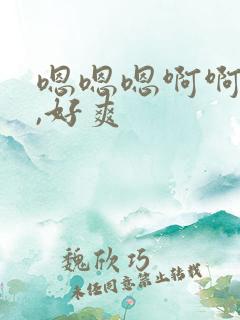 嗯嗯嗯啊啊
,好爽
魏欣巧
未经同意禁止转载